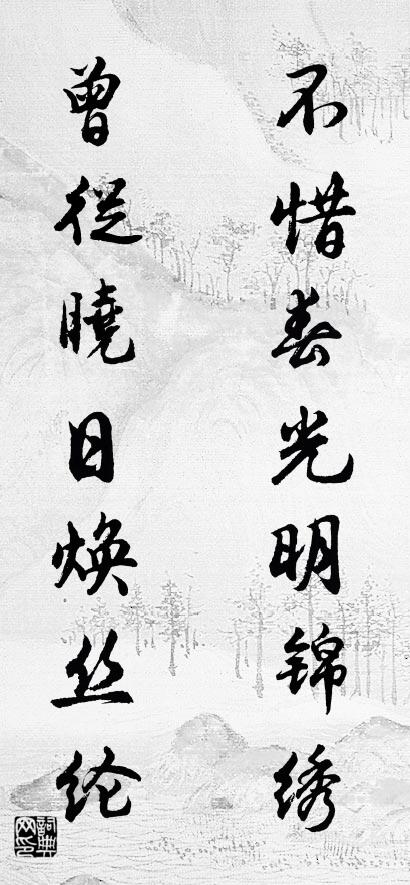 不惜春光明锦绣
曾從曉日焕丝纶
詞典网印